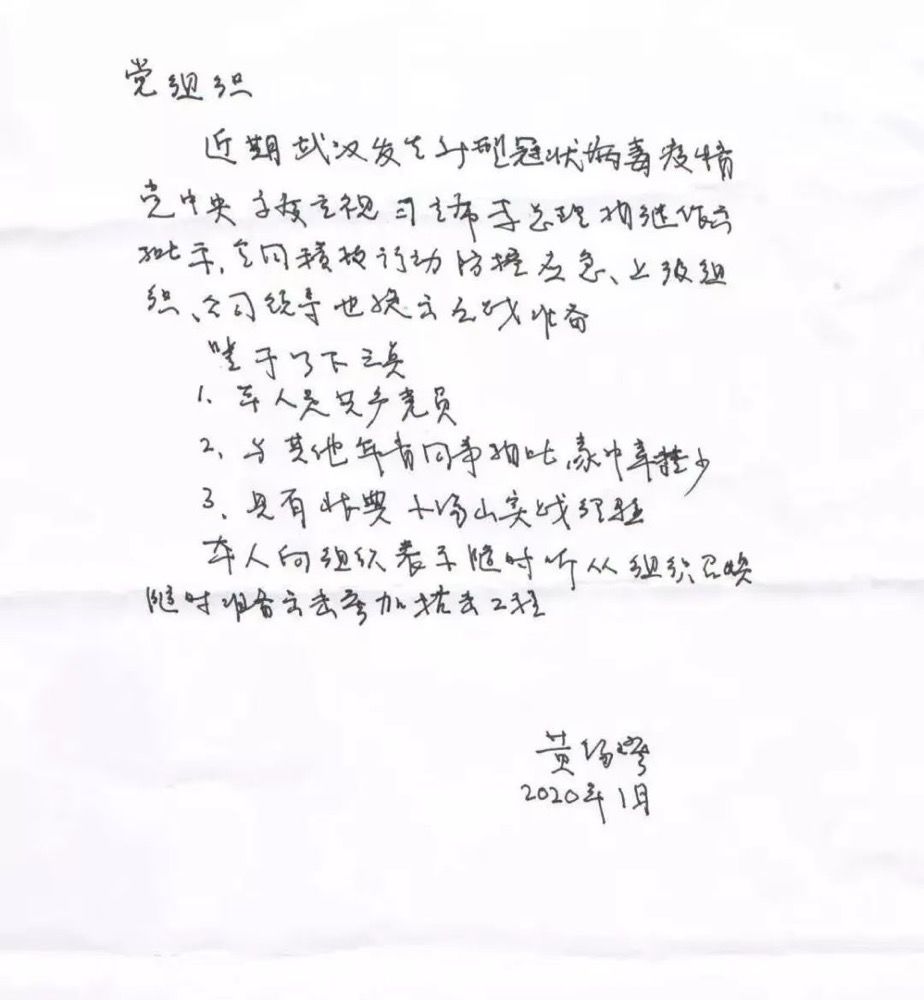 党组织
近期武汉发生新型冠状病毒疫情
党中央高度重视习主席李总理相继作出
批示,全国积极行动防控应急、上级组
织、公司领导也提出应战准备
鉴于以下三点
1、本人是共产党员
2、与其他年青同事相比,家中牵挂少
3、具有非典小汤山实战经验
本人向组织表示随时听从组织召唤
随时准备出击参加抗击工程
黄锡璆
2020年1月